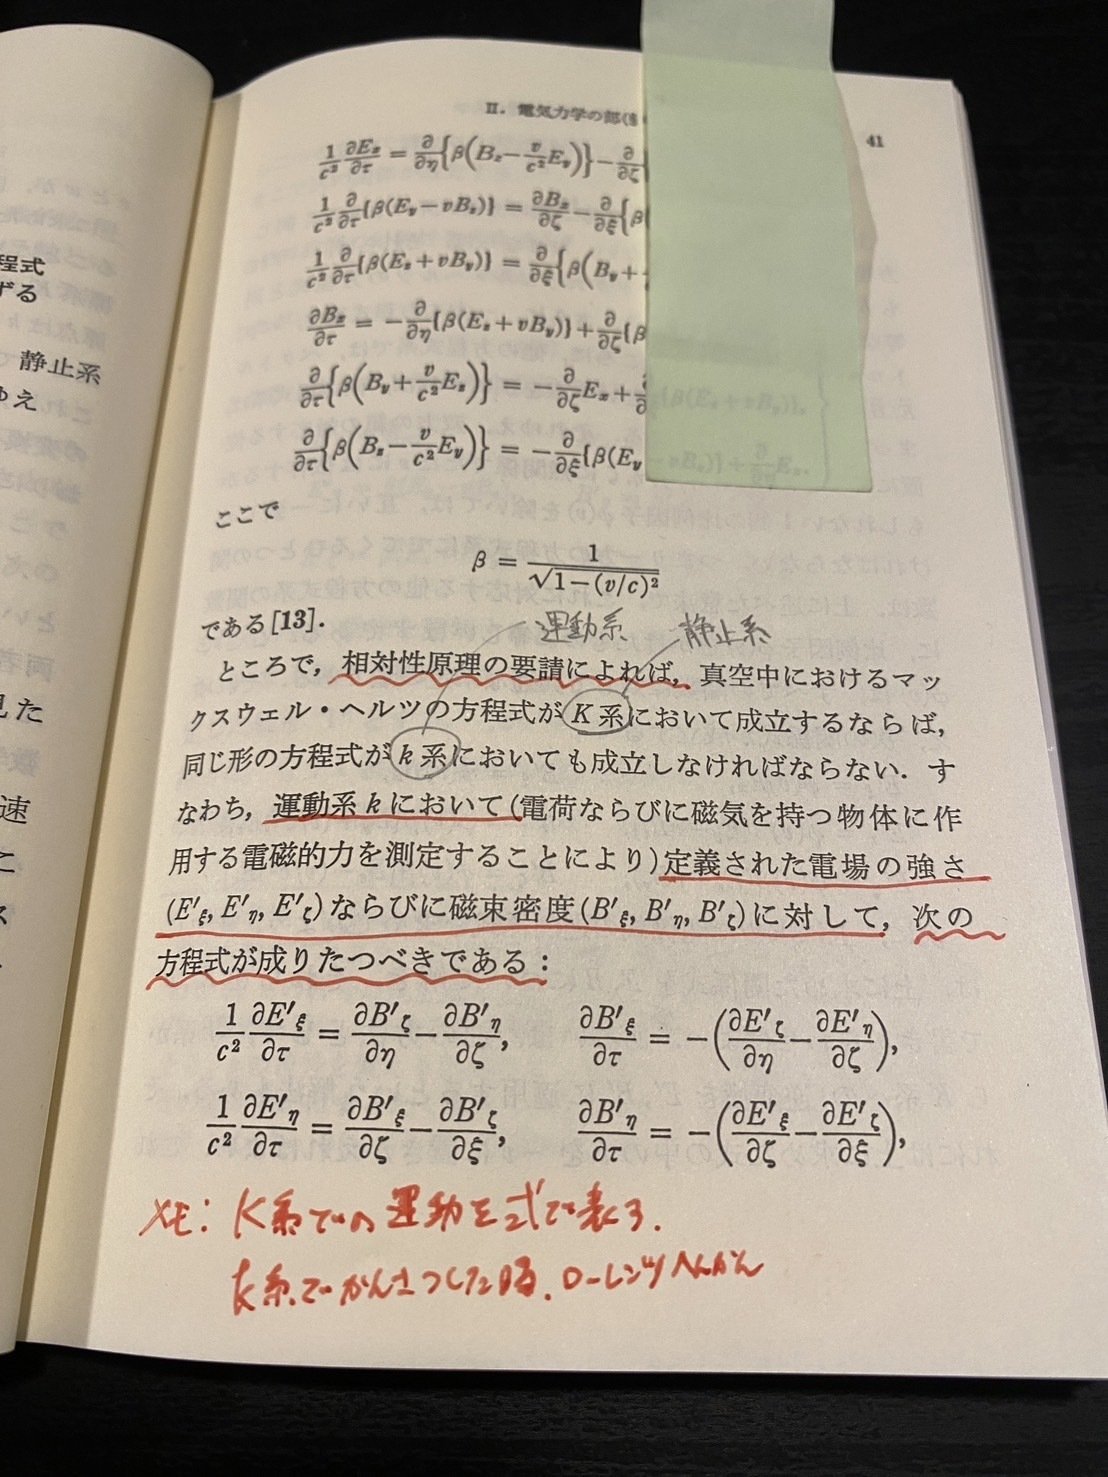 程式
ずる
静止系
ゆえ
見た
速
こ
II. 電気力学の部(§
41
1/c² ∂Eₓ/∂τ = ∂/∂η{β(B_z − v/c² E_y)} − ∂/∂ζ{
1/c² ∂/∂τ{β(E_y − vB_z)} = ∂Bₓ/∂ζ − ∂/∂ξ{β(
1/c² ∂/∂τ{β(E_z + vB_y)} = ∂/∂ξ{β(B_y +
∂Bₓ/∂τ = −∂/∂η{β(E_z + vB_y)} + ∂/∂ζ{β
∂/∂τ{β(B_y + v/c² E_z)} = −∂/∂ζ Eₓ +
∂/∂τ{β(B_z − v/c² E_y)} = −∂/∂ξ{β(E_y − vB_z)} + ∂/∂η Eₓ.
ここで
β = 1/√1−(v/c)²
である[13].
運動系 静止系
ところで, 相対性原理の要請によれば, 真空中におけるマッ
クスウェル・ヘルツの方程式が K 系において成立するならば,
同じ形の方程式が k 系においても成立しなければならない. す
なわち, 運動系 k において(電荷ならびに磁気を持つ物体に作
用する電磁的力を測定することにより)定義された電場の強さ
(E′ξ, E′η, E′ζ)ならびに磁束密度(B′ξ, B′η, B′ζ)に対して, 次の
方程式が成りたつべきである:
1/c² ∂E′ξ/∂τ = ∂B′ζ/∂η − ∂B′η/∂ζ, ∂B′ξ/∂τ = −(∂E′ζ/∂η − ∂E′η/∂ζ),
1/c² ∂E′η/∂τ = ∂B′ξ/∂ζ − ∂B′ζ/∂ξ, ∂B′η/∂τ = −(∂E′ξ/∂ζ − ∂E′ζ/∂ξ),
メモ: K系での運動を式で表す.
k系でかんさつした時. ローレンツへんかん